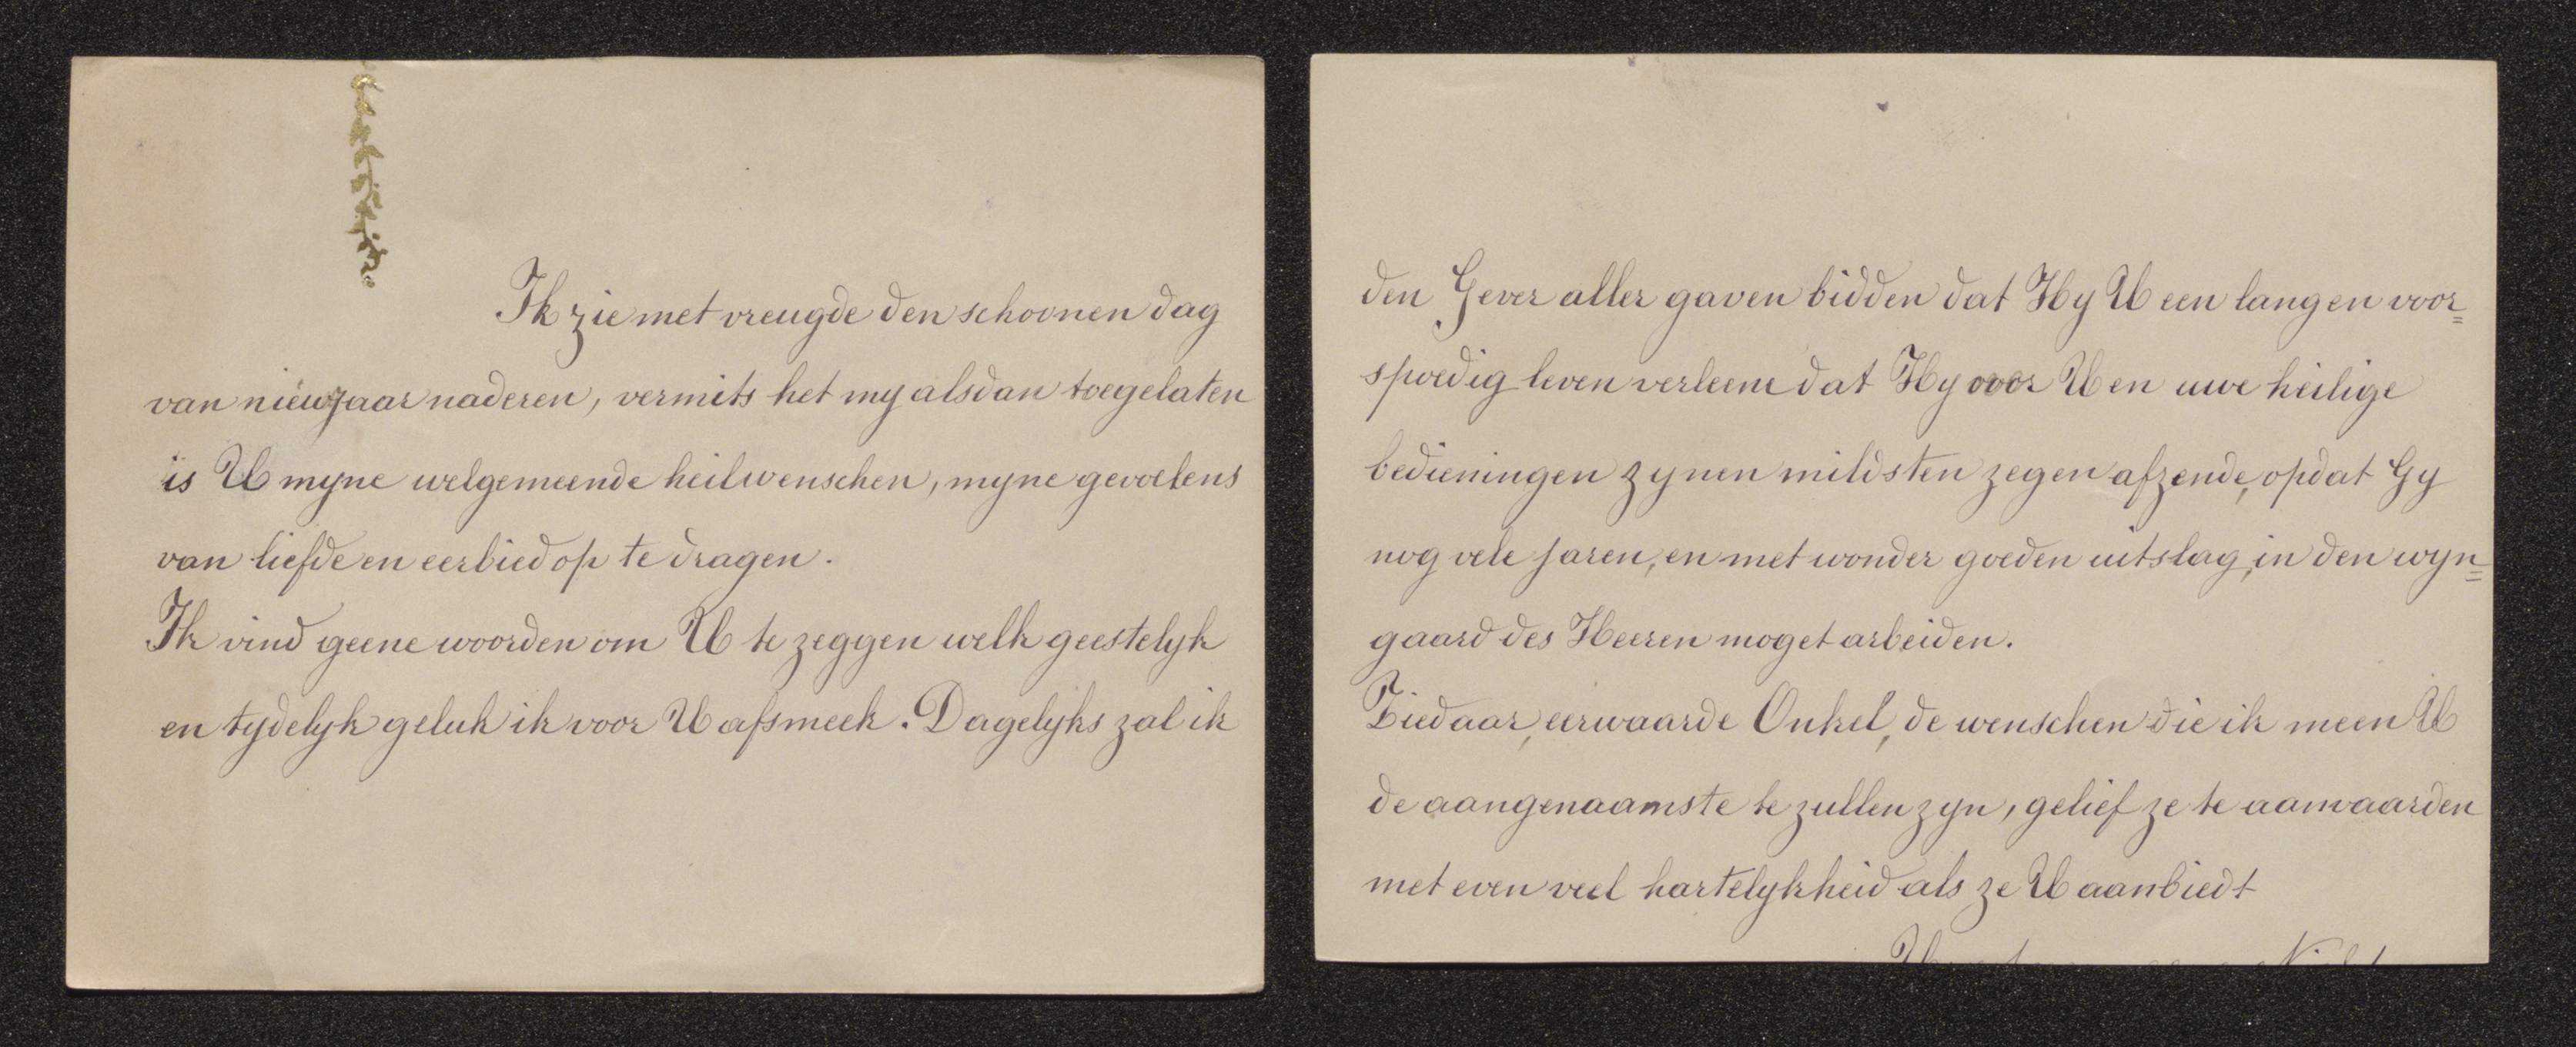 Ik zie met vreugde den schoonen dag
van nieuwjaar naderen, vermits het my alsdan toegelaten
is U myne welgemeende heilwenschen, myne gevoelens
van liefde en eerbied op te dragen.
Ik vind geene woorden om U te zeggen welk geestelyk
en tydelyk geluk ik voor U afsmeek. Dagelyks zal ik
den Gever aller gaven bidden dat Hy U een langen voor=
spoedig leven verleene dat Hy over U en uwe heilige
bedieningen zynen mildsten zegen afzende, opdat Gy
nog vele jaren, en met wonder goeden uitslag, in den wyn=
gaard des Heeren moget arbeiden.
Ziedaar, eerwaarde Onkel, de wenschen die ik meen U
de aangenaamste te zullen zyn, gelief ze te aanvaarden
met even veel hartelykheid als ze U aanbiedt